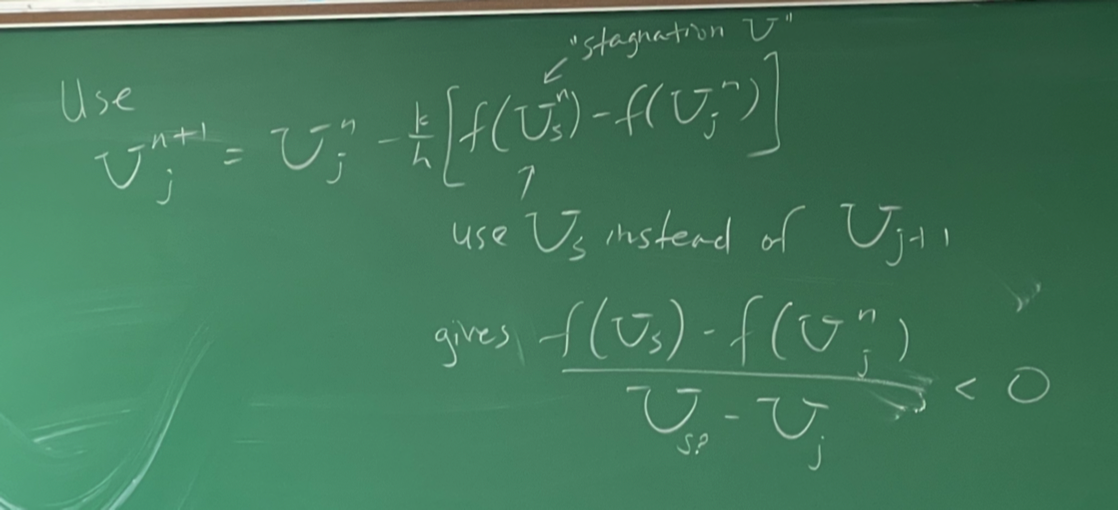 "stagnation U"
Use
U_j^{n+1} = U_j^n - k/h [f(U_s^n) - f(U_j^n)]
use U_s instead of U_{j+1}
gives f(U_s) - f(U_j^n) / U_{s?} - U_j < 0